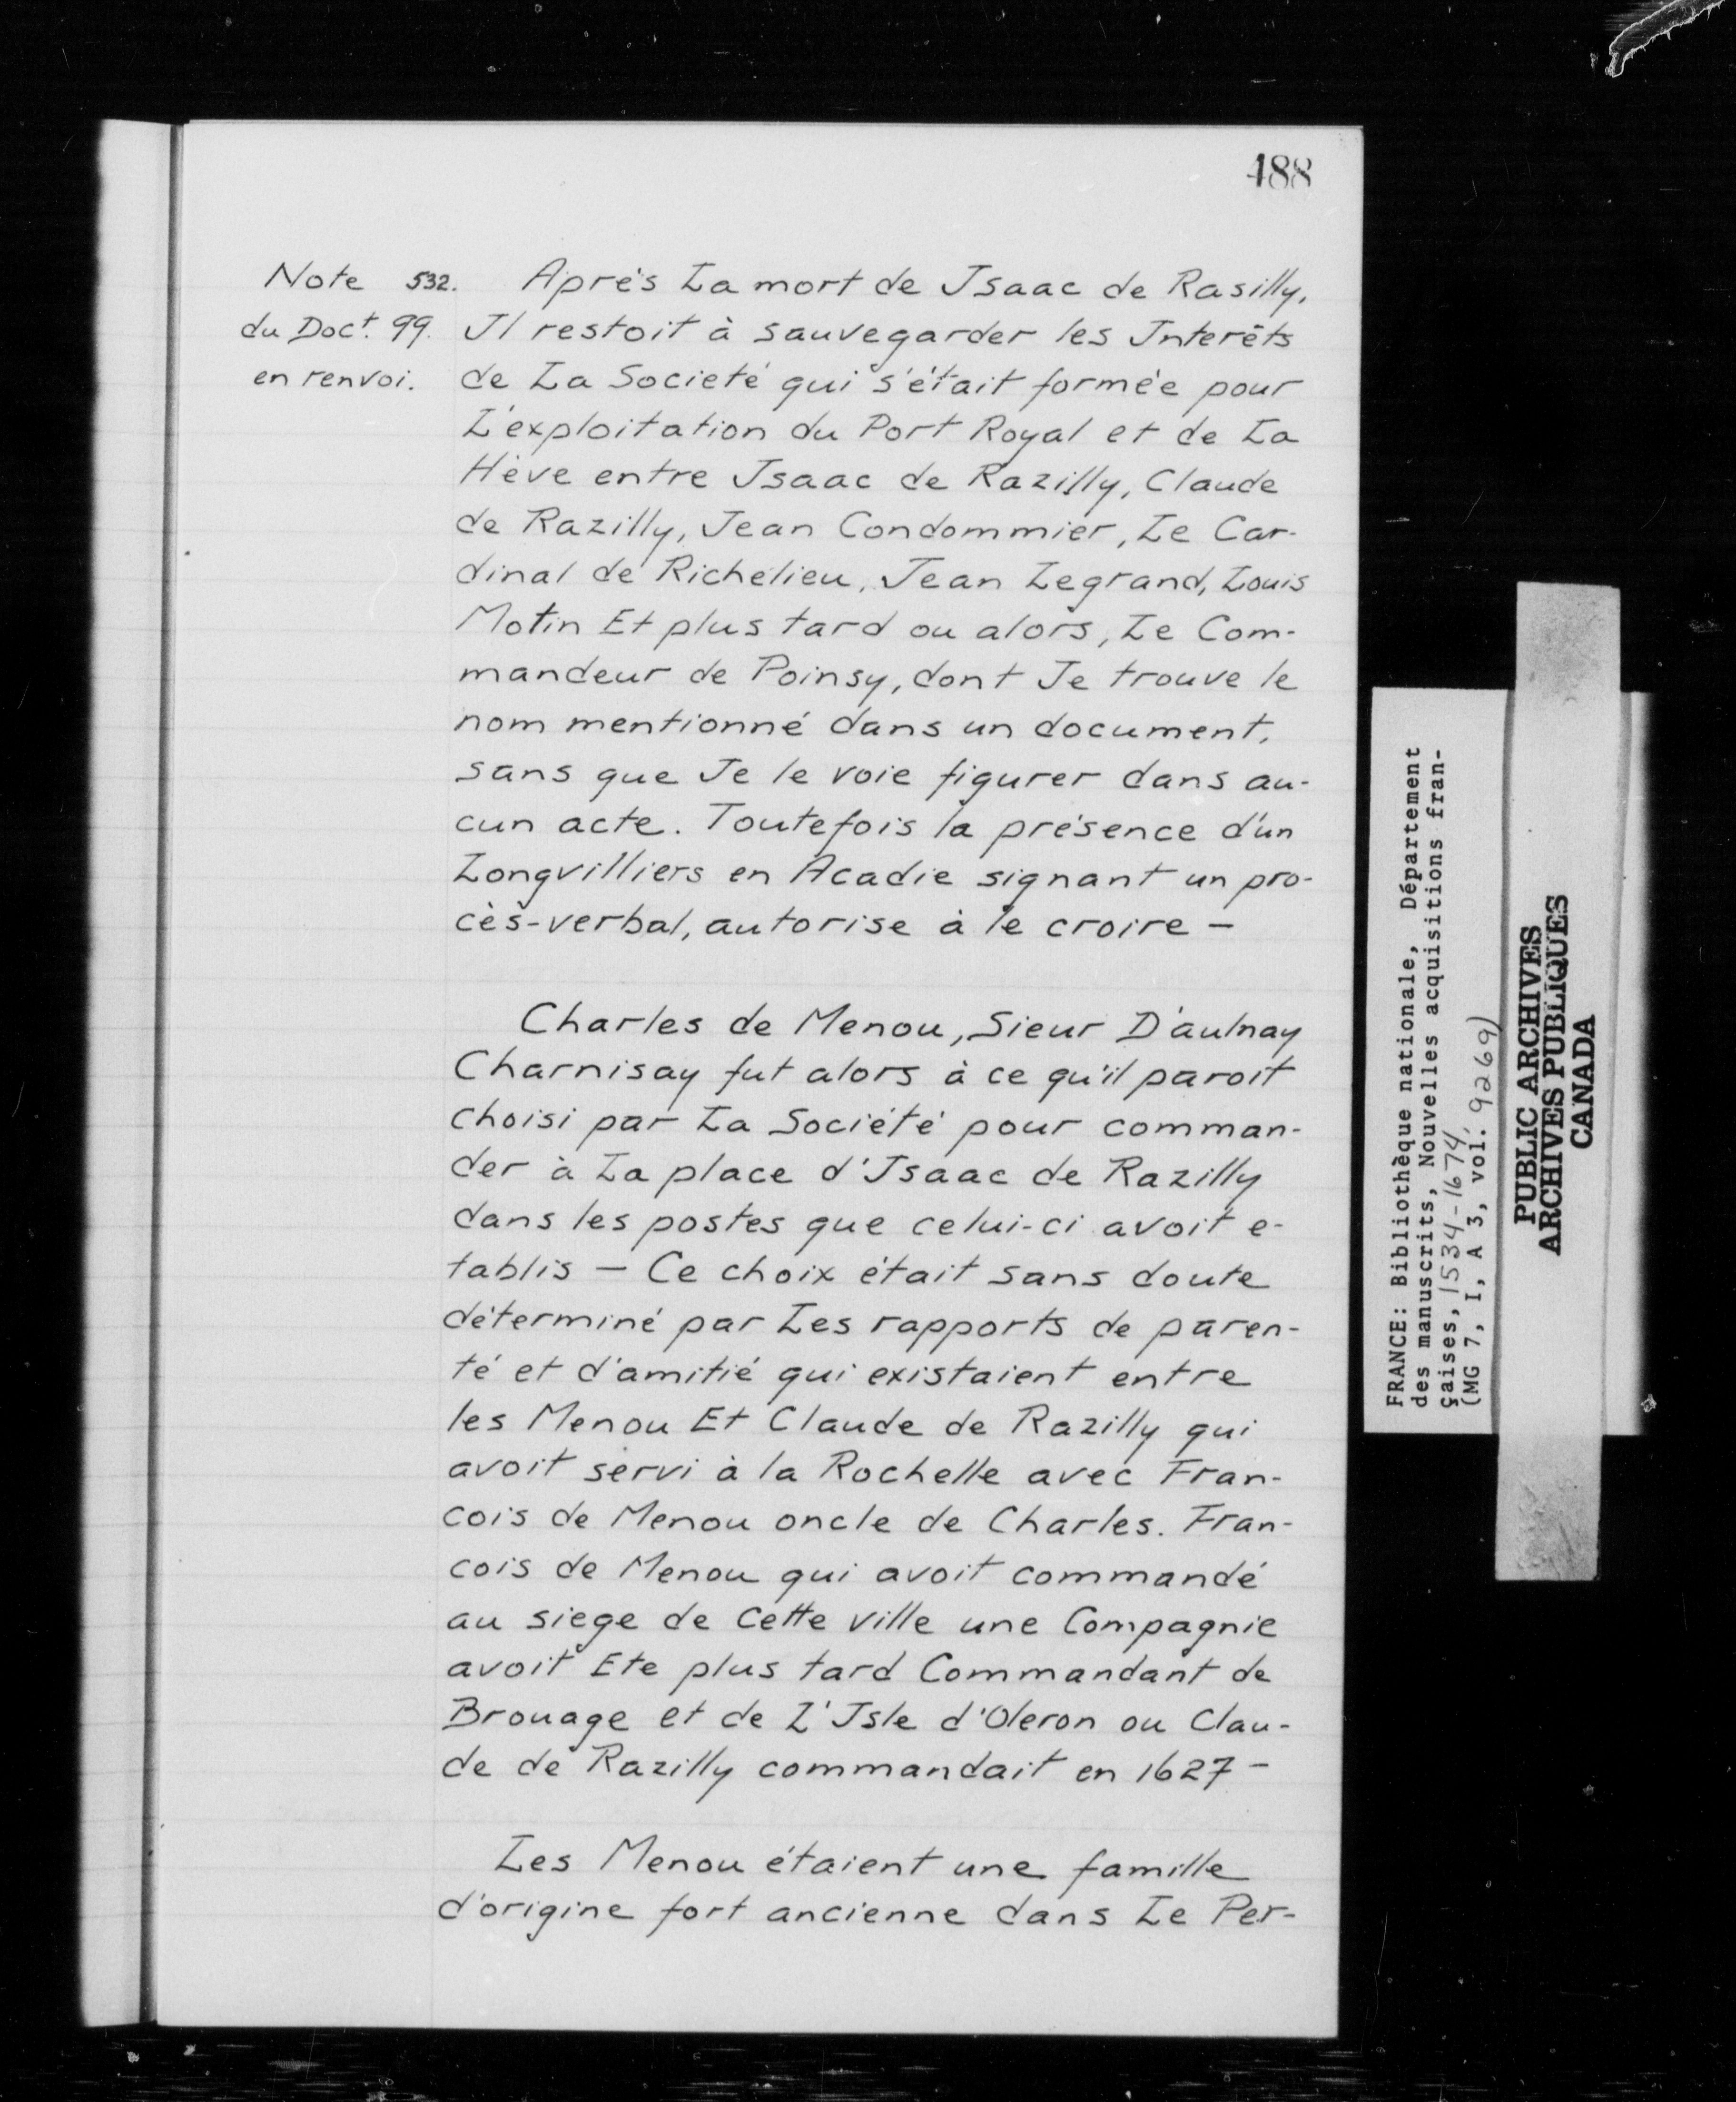 488
Note 532.
du Doct. 99.
en renvoi.
Après La mort de Isaac de Rasilly,
Il restoit à sauvegarder les Interêts
de La Societé qui s'était formée pour
L'éxploitation du Port Royal et de La
Hève entre Isaac de Razilly, Claude
de Razilly, Jean Condommier, Le Car-
dinal de Richelieu, Jean Legrand, Louis
Motin Et plus tard ou alors, Le Com-
mandeur de Poinsy, dont Je trouve le
nom mentionné dans un document,
sans que Je le voie figurer dans au-
cun acte. Toutefois la présence d'un
Longvilliers en Acadie signant un pro-
cès-verbal, autorise à le croire —
Charles de Menou, Sieur D'aulnay
Charnisay fut alors à ce qu'il paroit
choisi par La Société pour comman-
der à La place d'Isaac de Razilly
dans les postes que celui-ci avoit e-
tablis — Ce choix était sans doute
déterminé par Les rapports de paren-
té et d'amitié qui existaient entre
les Menou Et Claude de Razilly qui
avoit servi à la Rochelle avec Fran-
cois de Menou oncle de Charles. Fran-
cois de Menou qui avoit commandé
au siege de Cette ville une Compagnie
avoit Ete plus tard Commandant de
Brouage et de L'Isle d'Oleron ou Clau-
de de Razilly commandait en 1627 —
Les Menou étaient une famille
d'origine fort ancienne dans Le Per-
FRANCE: Bibliothèque nationale, Département
des manuscrits, Nouvelles acquisitions fran-
çaises, 1534-1674,
(MG 7, I, A 3, vol. 9269)
PUBLIC ARCHIVES
ARCHIVES PUBLIQUES
CANADA